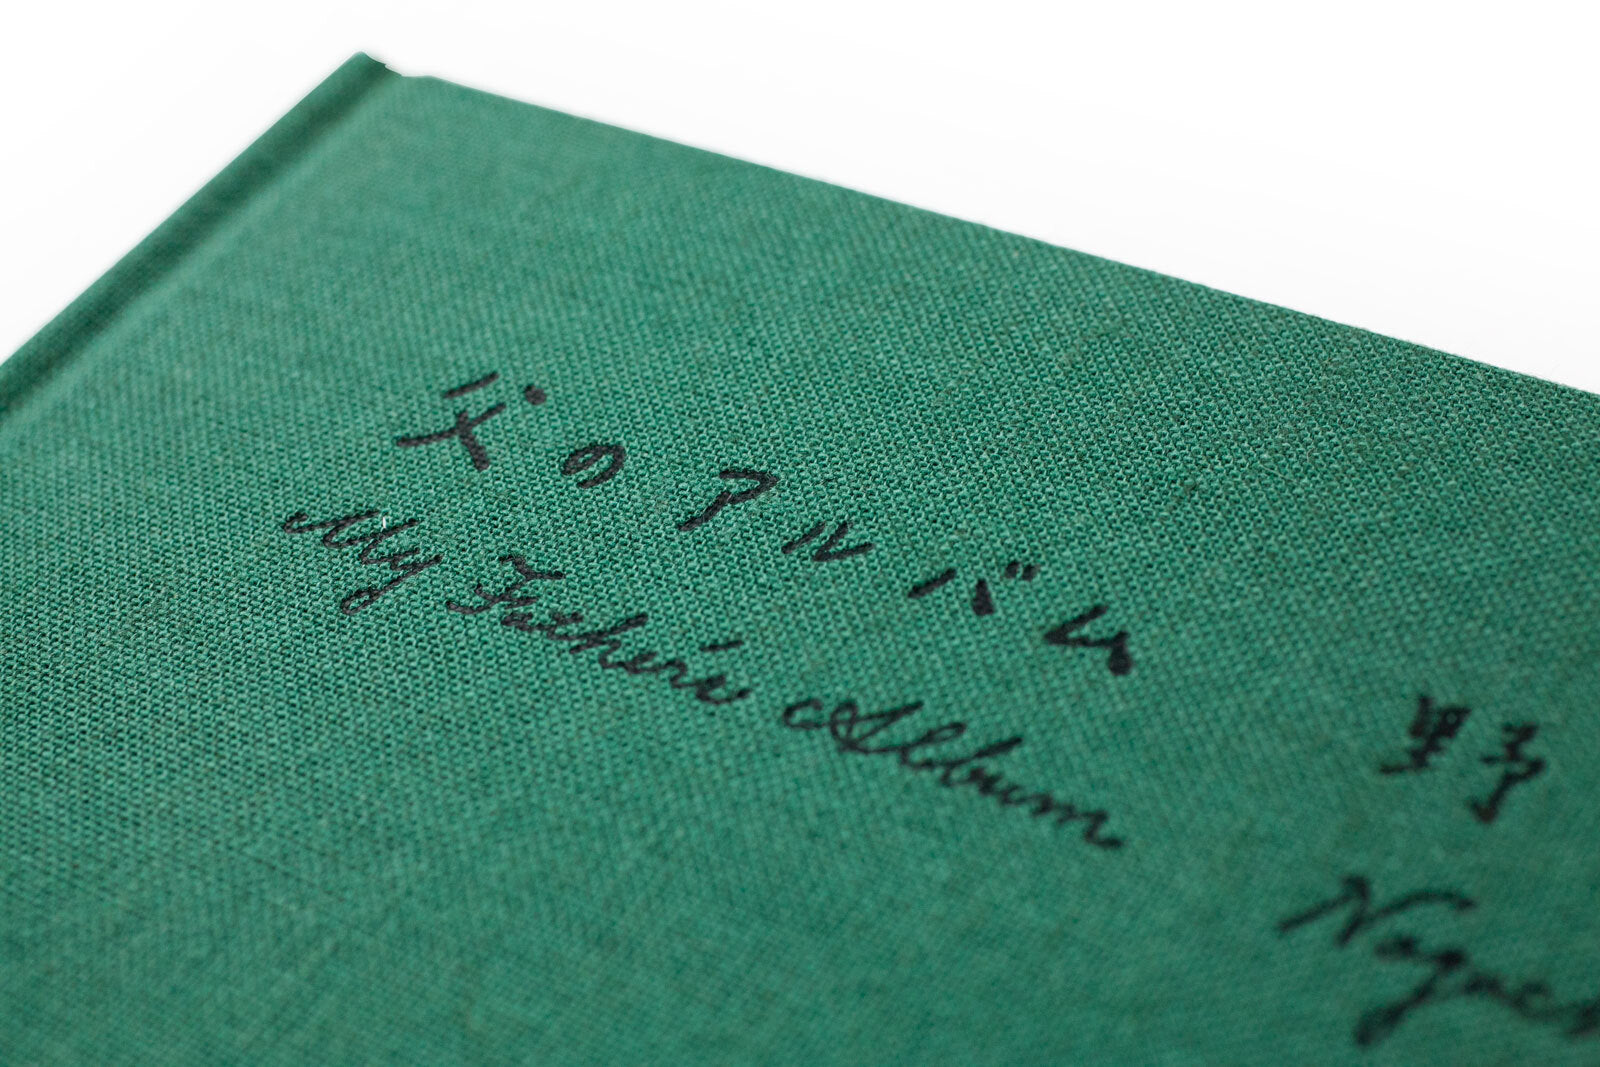 父のアルバム
My Father's Album
野